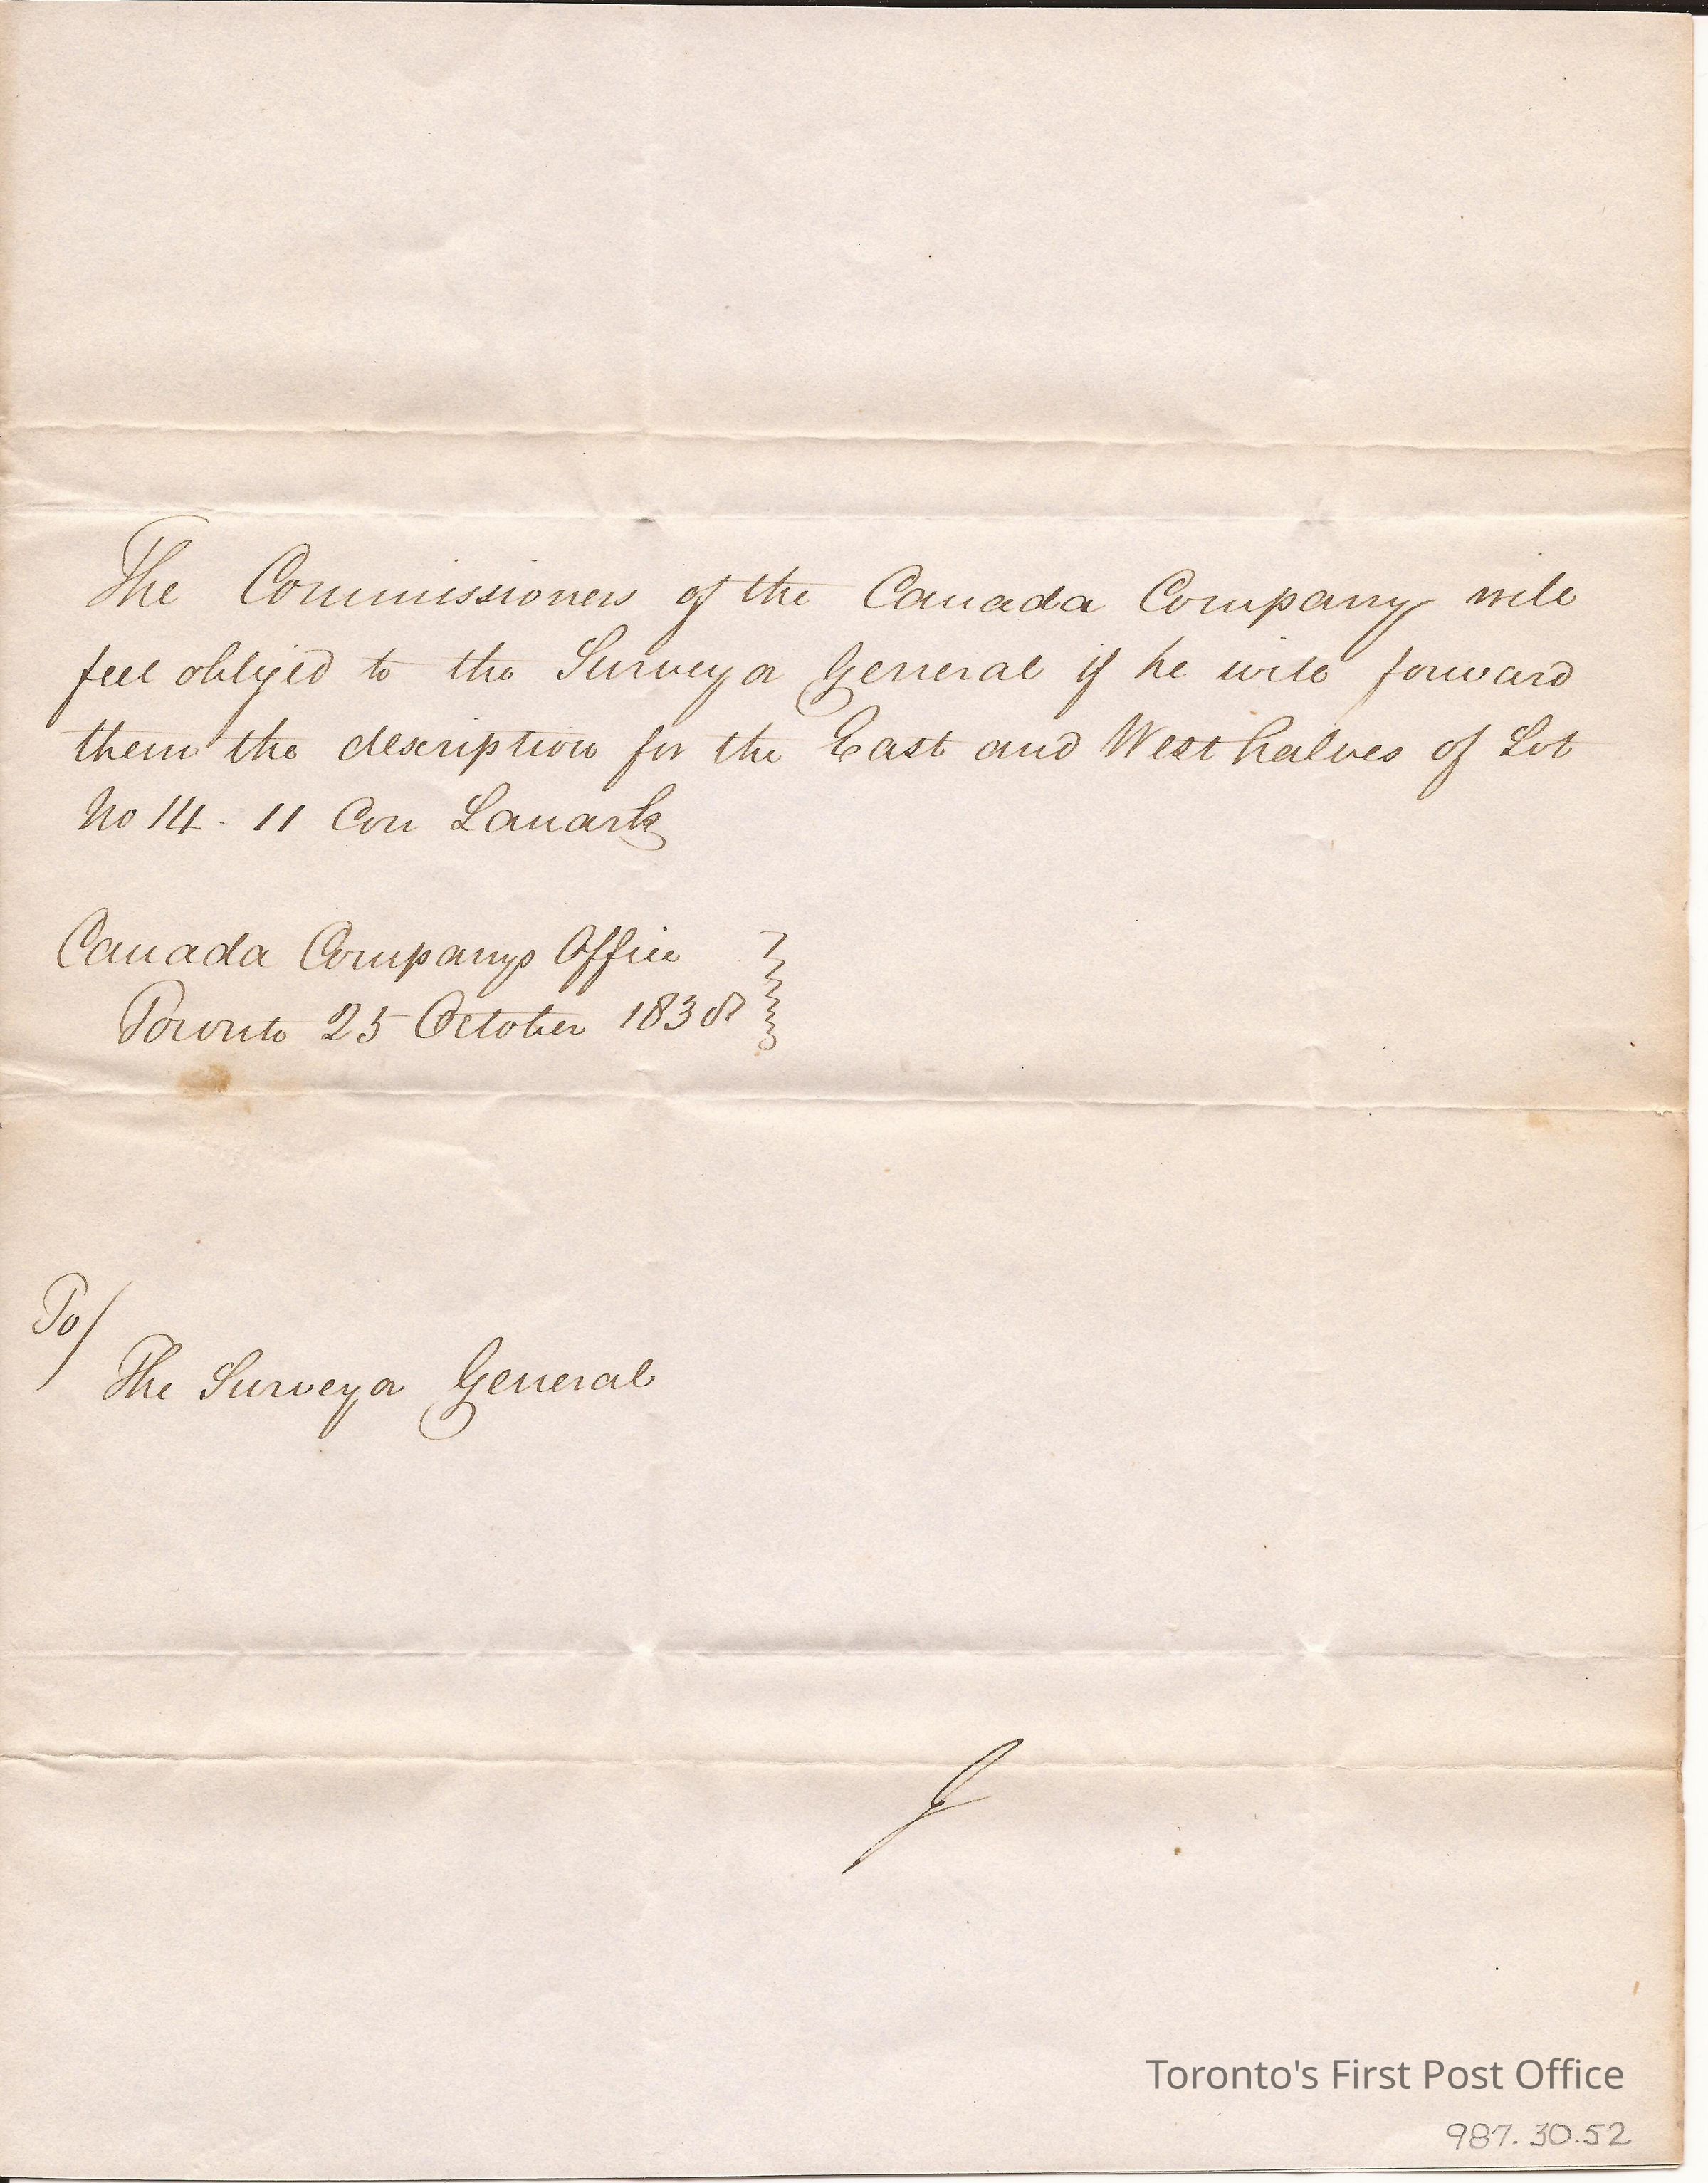 The Commissioners of the Canada Company will
feel obliged to the Surveyor General if he will forward
them the description for the East and West halves of Lot
No 14 - 11 Con Lanark
Canada Companys Office
Toronto 25 October 1838
To/
The Surveyor General
Toronto's First Post Office
987.30.52